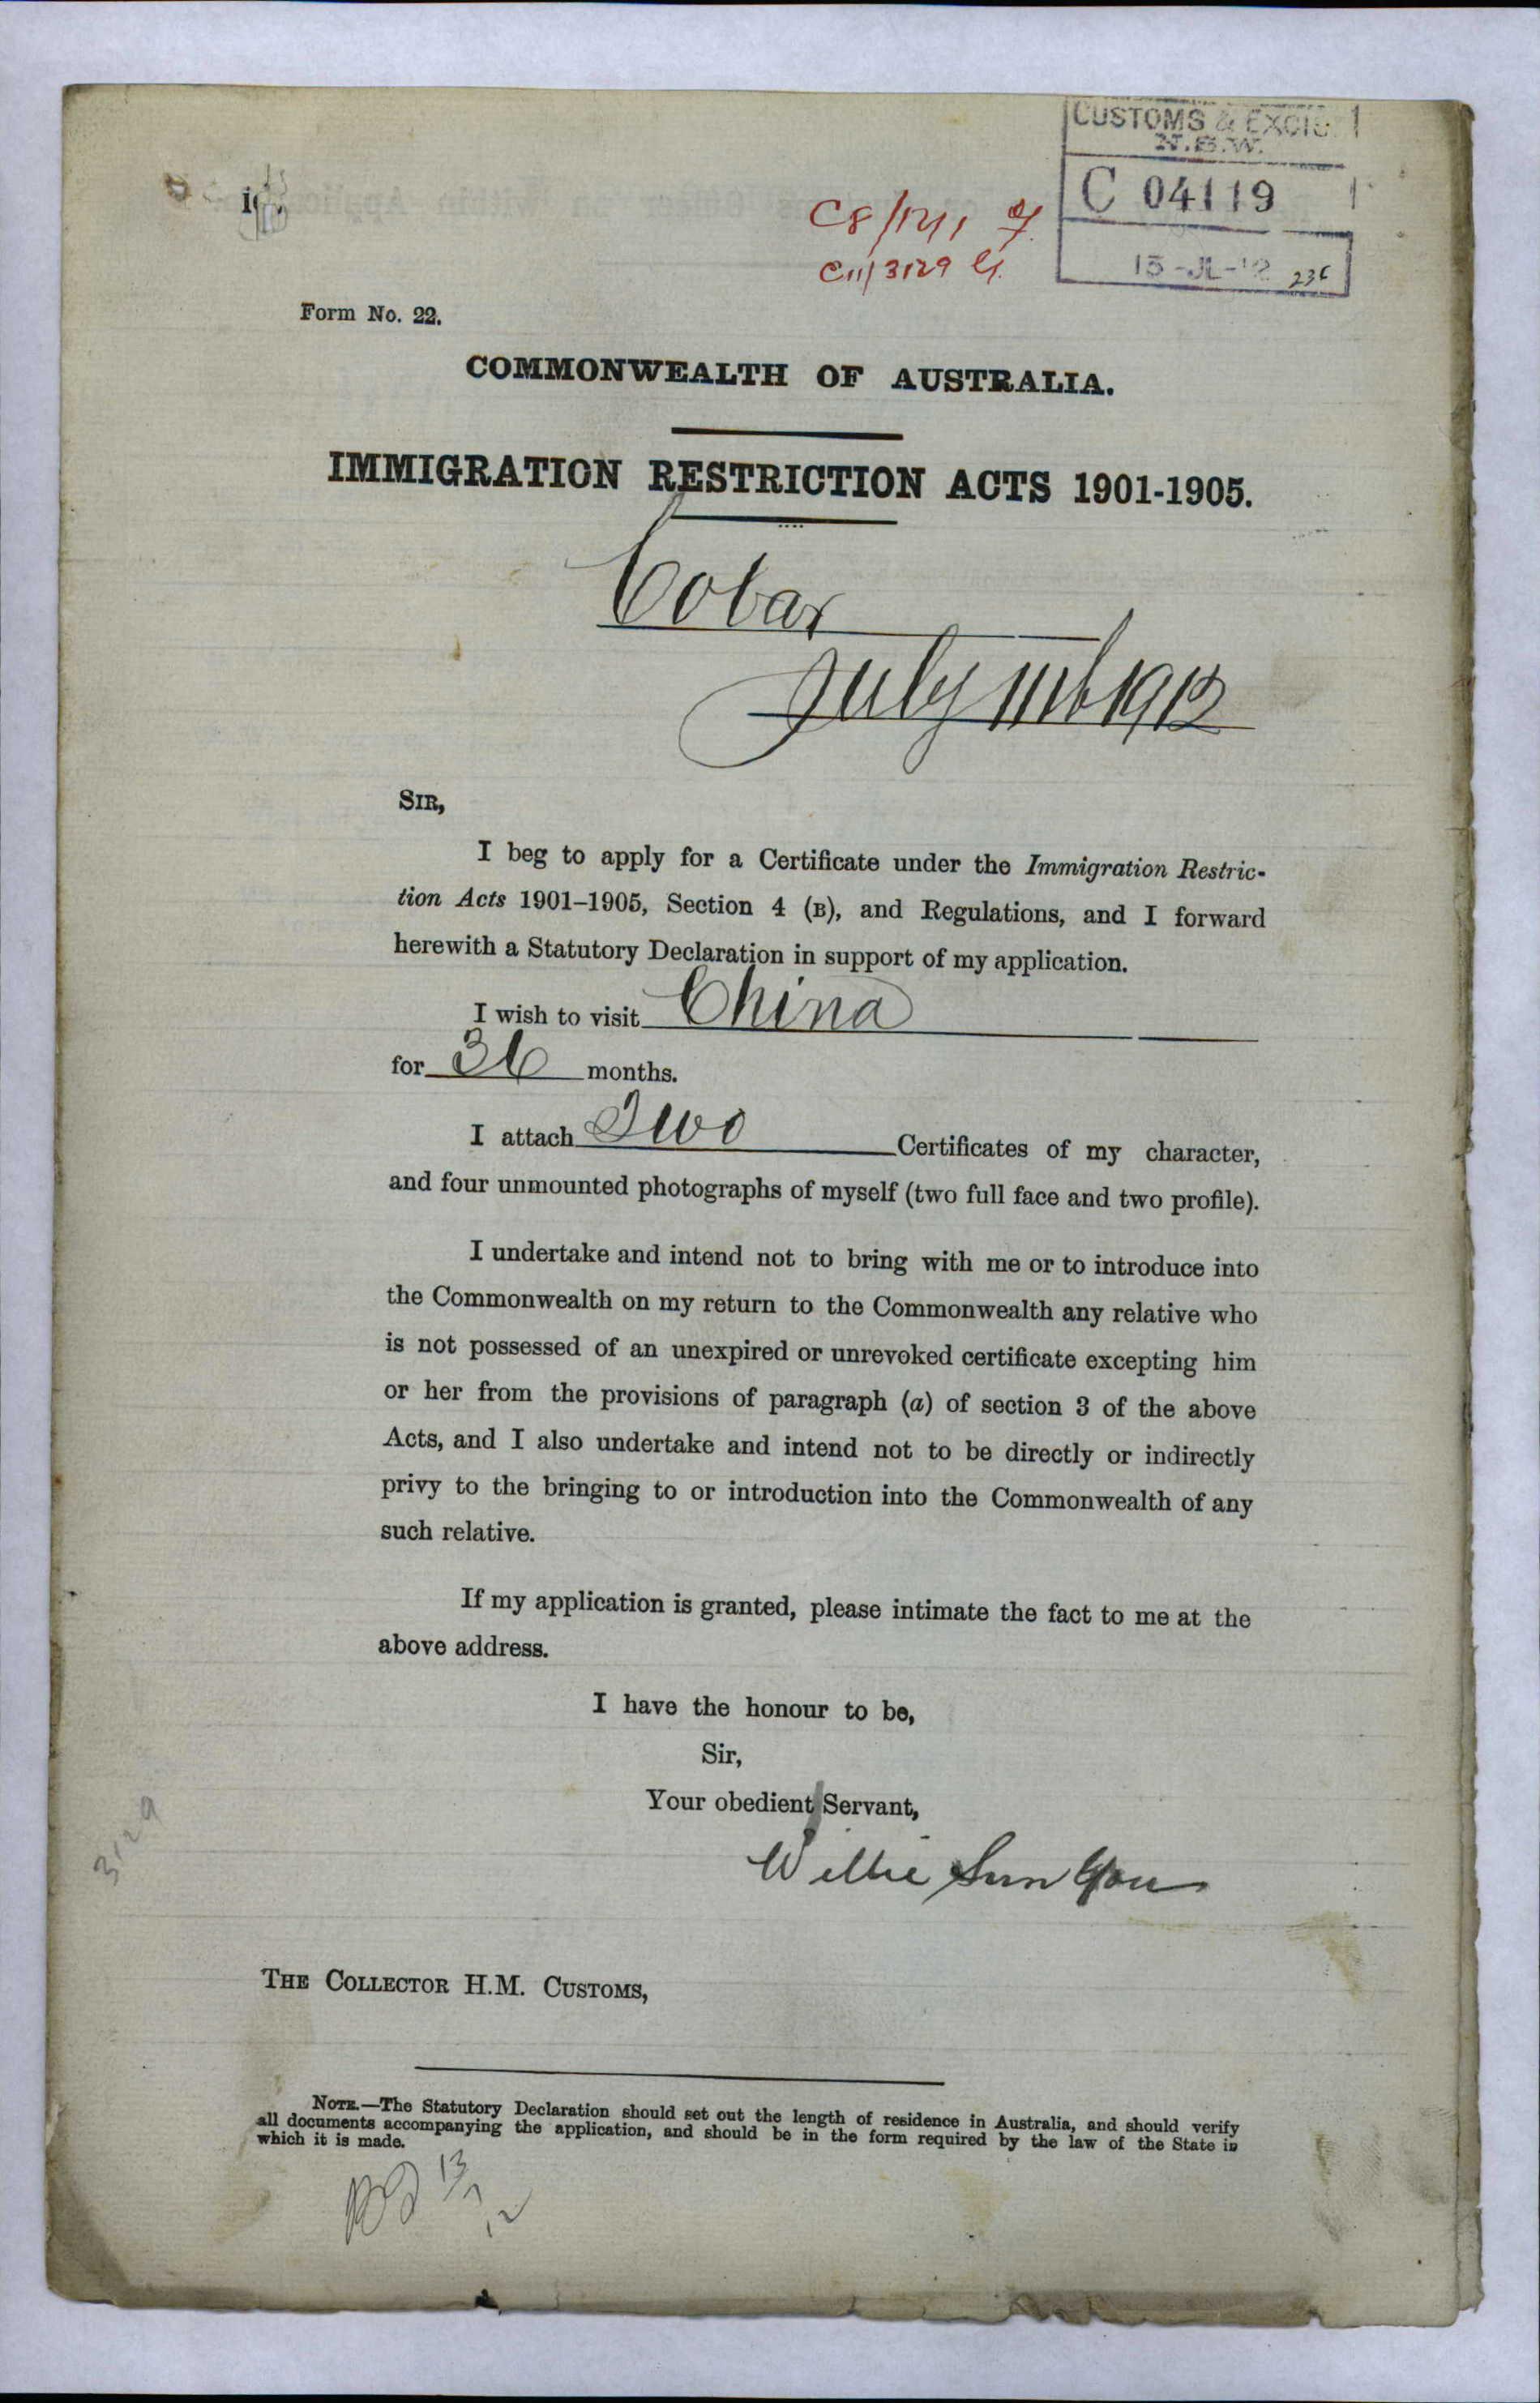 CUSTOMS & EXCIS
N.S.W.
C 04119
15-JL-12 236
C8/1211
C11/3129
Form No. 22.
COMMONWEALTH OF AUSTRALIA.
IMMIGRATION RESTRICTION ACTS 1901-1905.
Cobar
July 11th 1912
SIR,
I beg to apply for a Certificate under the Immigration Restric-
tion Acts 1901–1905, Section 4 (B), and Regulations, and I forward
herewith a Statutory Declaration in support of my application.
I wish to visit China
for 36 months.
I attach Two Certificates of my character,
and four unmounted photographs of myself (two full face and two profile).
I undertake and intend not to bring with me or to introduce into
the Commonwealth on my return to the Commonwealth any relative who
is not possessed of an unexpired or unrevoked certificate excepting him
or her from the provisions of paragraph (a) of section 3 of the above
Acts, and I also undertake and intend not to be directly or indirectly
privy to the bringing to or introduction into the Commonwealth of any
such relative.
If my application is granted, please intimate the fact to me at the
above address.
I have the honour to be,
Sir,
Your obedient Servant,
Willie Sun You
3129
THE COLLECTOR H.M. CUSTOMS,
NOTE.—The Statutory Declaration should set out the length of residence in Australia, and should verify
all documents accompanying the application, and should be in the form required by the law of the State in
which it is made.
13/7/12